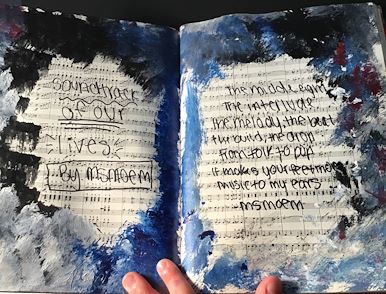 Soundtrack
of our
lives
By msmoem
The middle eight
The interlude
the melody, the beat
the build, the drop
from folk to pop
it makes your feet move
music to my ears
msmoem